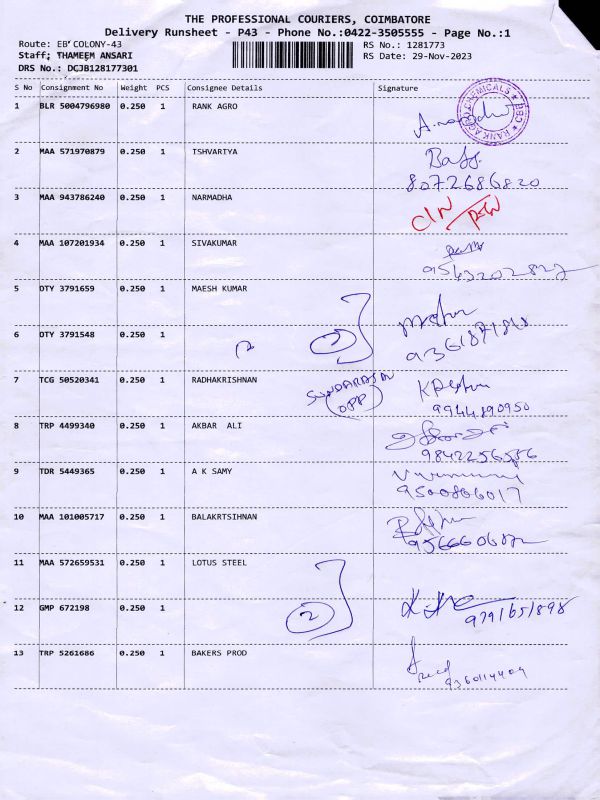 THE PROFESSIONAL COURIERS, COIMBATORE
Delivery Runsheet - P43 - Phone No.:0422-3505555 - Page No.:1
Route: EB COLONY-43
RS No.: 1281773
Staff: THAMEEM ANSARI
RS Date: 29-Nov-2023
DRS No.: DCJB128177301
S No Consignment No Weight PCS Consignee Details Signature
1 BLR 5004796980 0.250 1 RANK AGRO
RANK AGRO CHEMICALS CBE
2 MAA 571970879 0.250 1 TSHVARIYA
8072686820
3 MAA 943786240 0.250 1 NARMADHA
4 MAA 107201934 0.250 1 SIVAKUMAR
5 DTY 3791659 0.250 1 MAESH KUMAR
2
6 DTY 3791548 0.250 1
7 TCG 50520341 0.250 1 RADHAKRISHNAN
SUNDARAJAN
OPP
9944890950
8 TRP 4499340 0.250 1 AKBAR ALI
9842256586
9 TDR 5449365 0.250 1 A K SAMY
9500806017
10 MAA 101005717 0.250 1 BALAKRTSIHNAN
11 MAA 572659531 0.250 1 LOTUS STEEL
2
12 GMP 672198 0.250 1
9791651898
13 TRP 5261686 0.250 1 BAKERS PROD